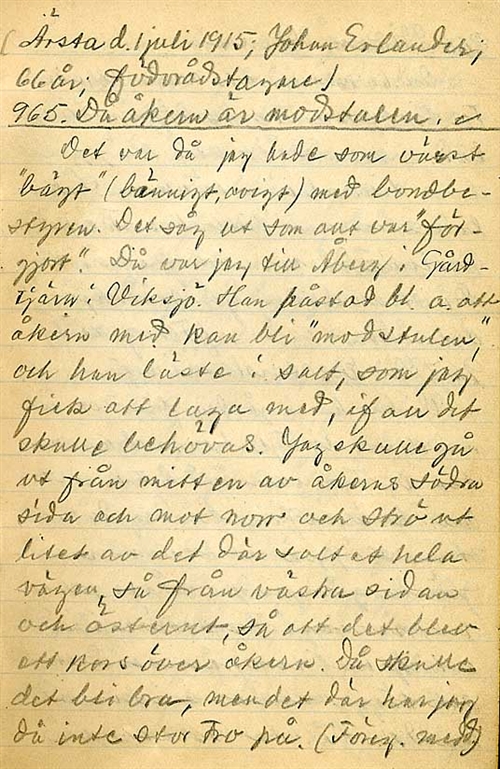 (Årsta d. 1 juli 1915; Johan Erlander,
66 år; födorådstagare)
965. Då åkern är modstulen.
Det var då jag hade som värst
"bågt" (bännigt, avigt) med bondbe-
styren. Det såg ut som allt var "för-
gjort". Då var jag till Åberg i Gård-
tjärn i Viksjö. Han påstod bl. a. att
åkern med kan bli "modstulen",
och han läste i salt, som jag
fick att laga med, ifall det
skulle behövas. Jag skulle gå
ut från mitten av åkerns södra
sida och mot norr och strö ut
litet av det där saltet hela
vägen, så från västra sidan
och österut, så att det blev
ett kors över åkern. Då skulle
det bli bra, men det där har jag
då inte stor tro på. (Föreg. medd)